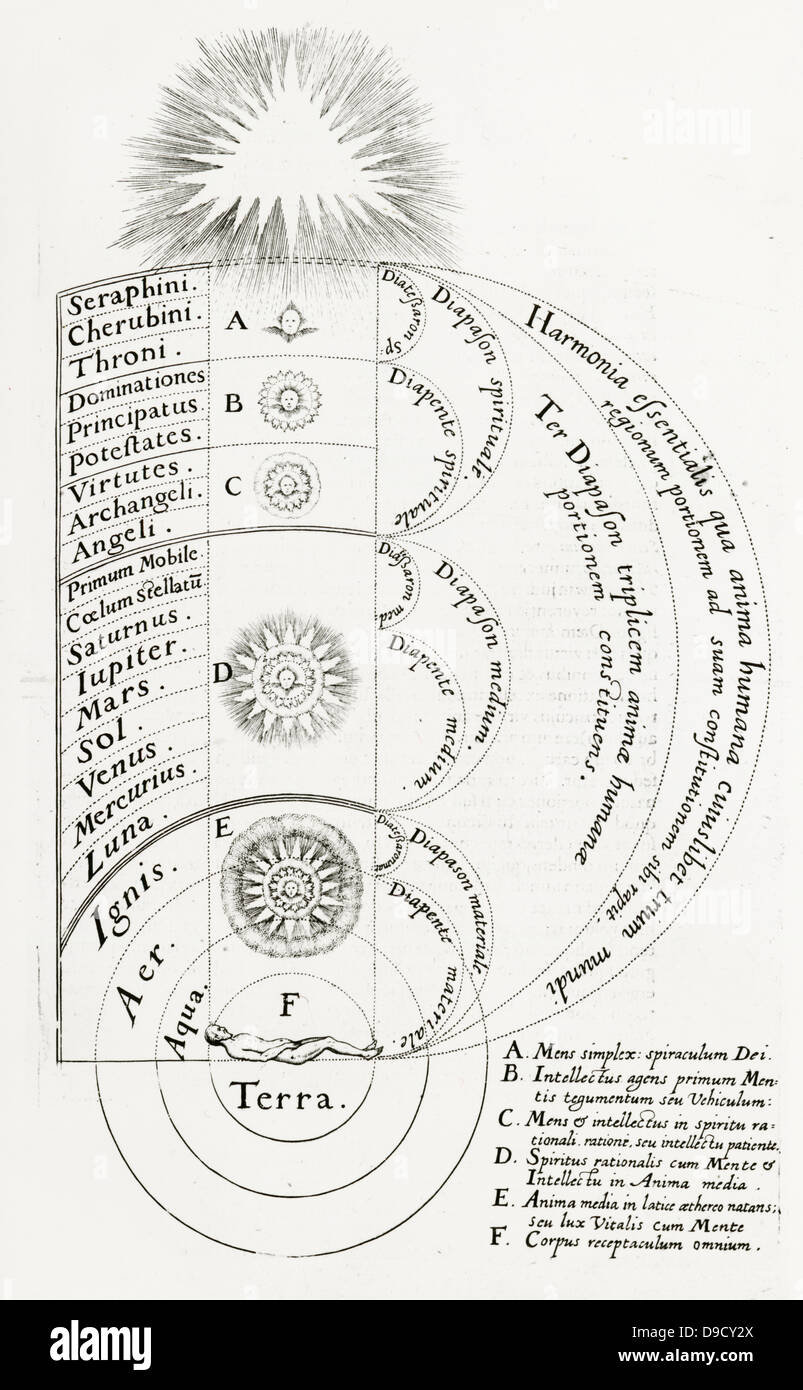 Seraphini.
Cherubini.
Throni.
Dominationes
Principatus
Poteſtates.
Virtutes.
Archangeli.
Angeli.
Primum Mobile
Cœlum Stellatū
Saturnus.
Iupiter.
Mars.
Sol.
Venus.
Mercurius.
Luna.
Ignis.
Aer.
Aqua.
Terra.
A
B
C
D
E
F
Diateßaron Sp:
Diapaſon spirituale.
Diapente spirituale
Diapaſon medium.
Diapente medium.
Diapason materiale
Diapente materiale.
Harmonia eſsentialis qua anima humana cuiuslibet trium mundi
regionum portionem ad suam conſtitutionem sibi rapit.
Ter Diapaſon triplicem animæ humanæ
portionem constituens.
A. Mens simplex: spiraculum Dei.
B. Intellectus agens primum Men-
tis tegumentum seu Vehiculum:
C. Mens & intellectus in spiritu ra=
tionali. ratione, seu intellectu patiente.
D. Spiritus rationalis cum Mente &
Intellectu in Anima media.
E. Anima media in latice æthereo natans;
seu lux Vitalis cum Mente
F. Corpus receptaculum omnium.
alamy
alamy
alamy
Image ID: D9CY2X
www.alamy.com